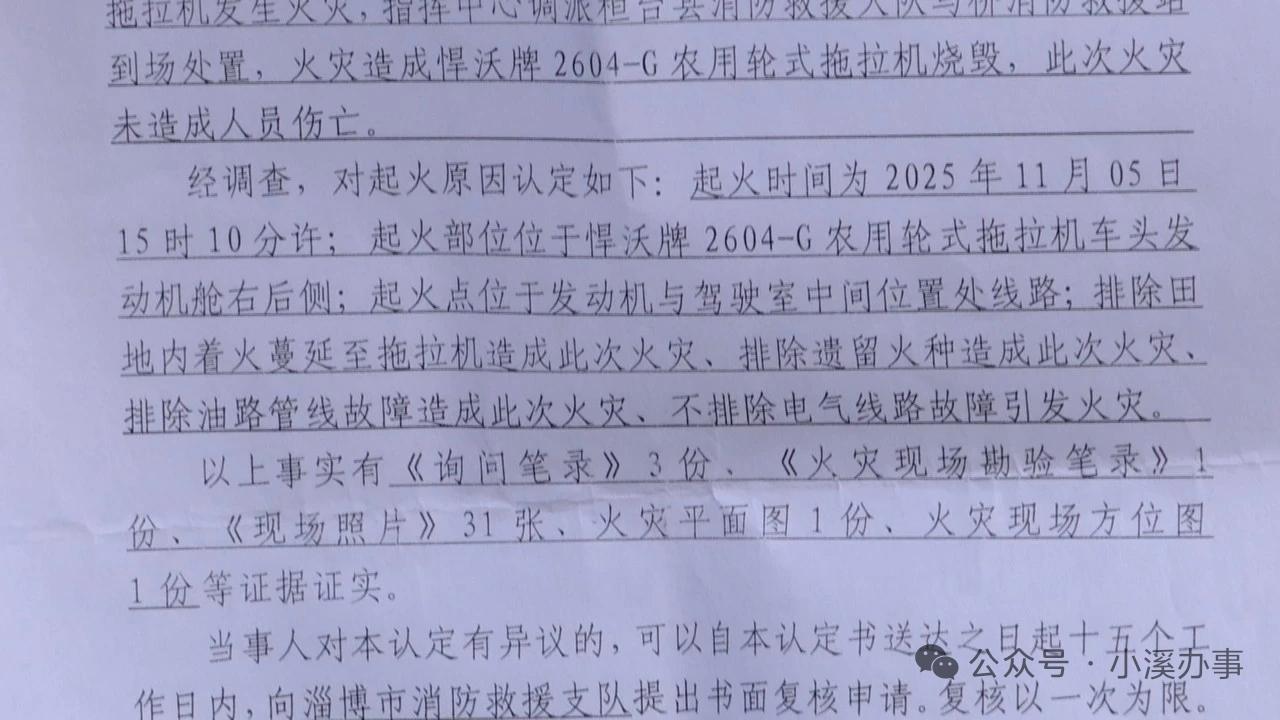 拖拉机发生火灾，指挥中心调派桓台县消防救援大队马桥消防救援站
到场处置，火灾造成悍沃牌 2604-G 农用轮式拖拉机烧毁，此次火灾
未造成人员伤亡。
经调查，对起火原因认定如下：起火时间为 2025 年 11 月 05 日
15 时 10 分许；起火部位位于悍沃牌 2604-G 农用轮式拖拉机车头发
动机舱右后侧；起火点位于发动机与驾驶室中间位置处线路；排除田
地内着火蔓延至拖拉机造成此次火灾、排除遗留火种造成此次火灾、
排除油路管线故障造成此次火灾、不排除电气线路故障引发火灾。
以上事实有《询问笔录》3 份、《火灾现场勘验笔录》1
份、《现场照片》31 张、火灾平面图 1 份、火灾现场方位图
1 份等证据证实。
当事人对本认定有异议的，可以自本认定书送达之日起十五个工
作日内，向淄博市消防救援支队提出书面复核申请。复核以一次为限。
公众号·小溪办事